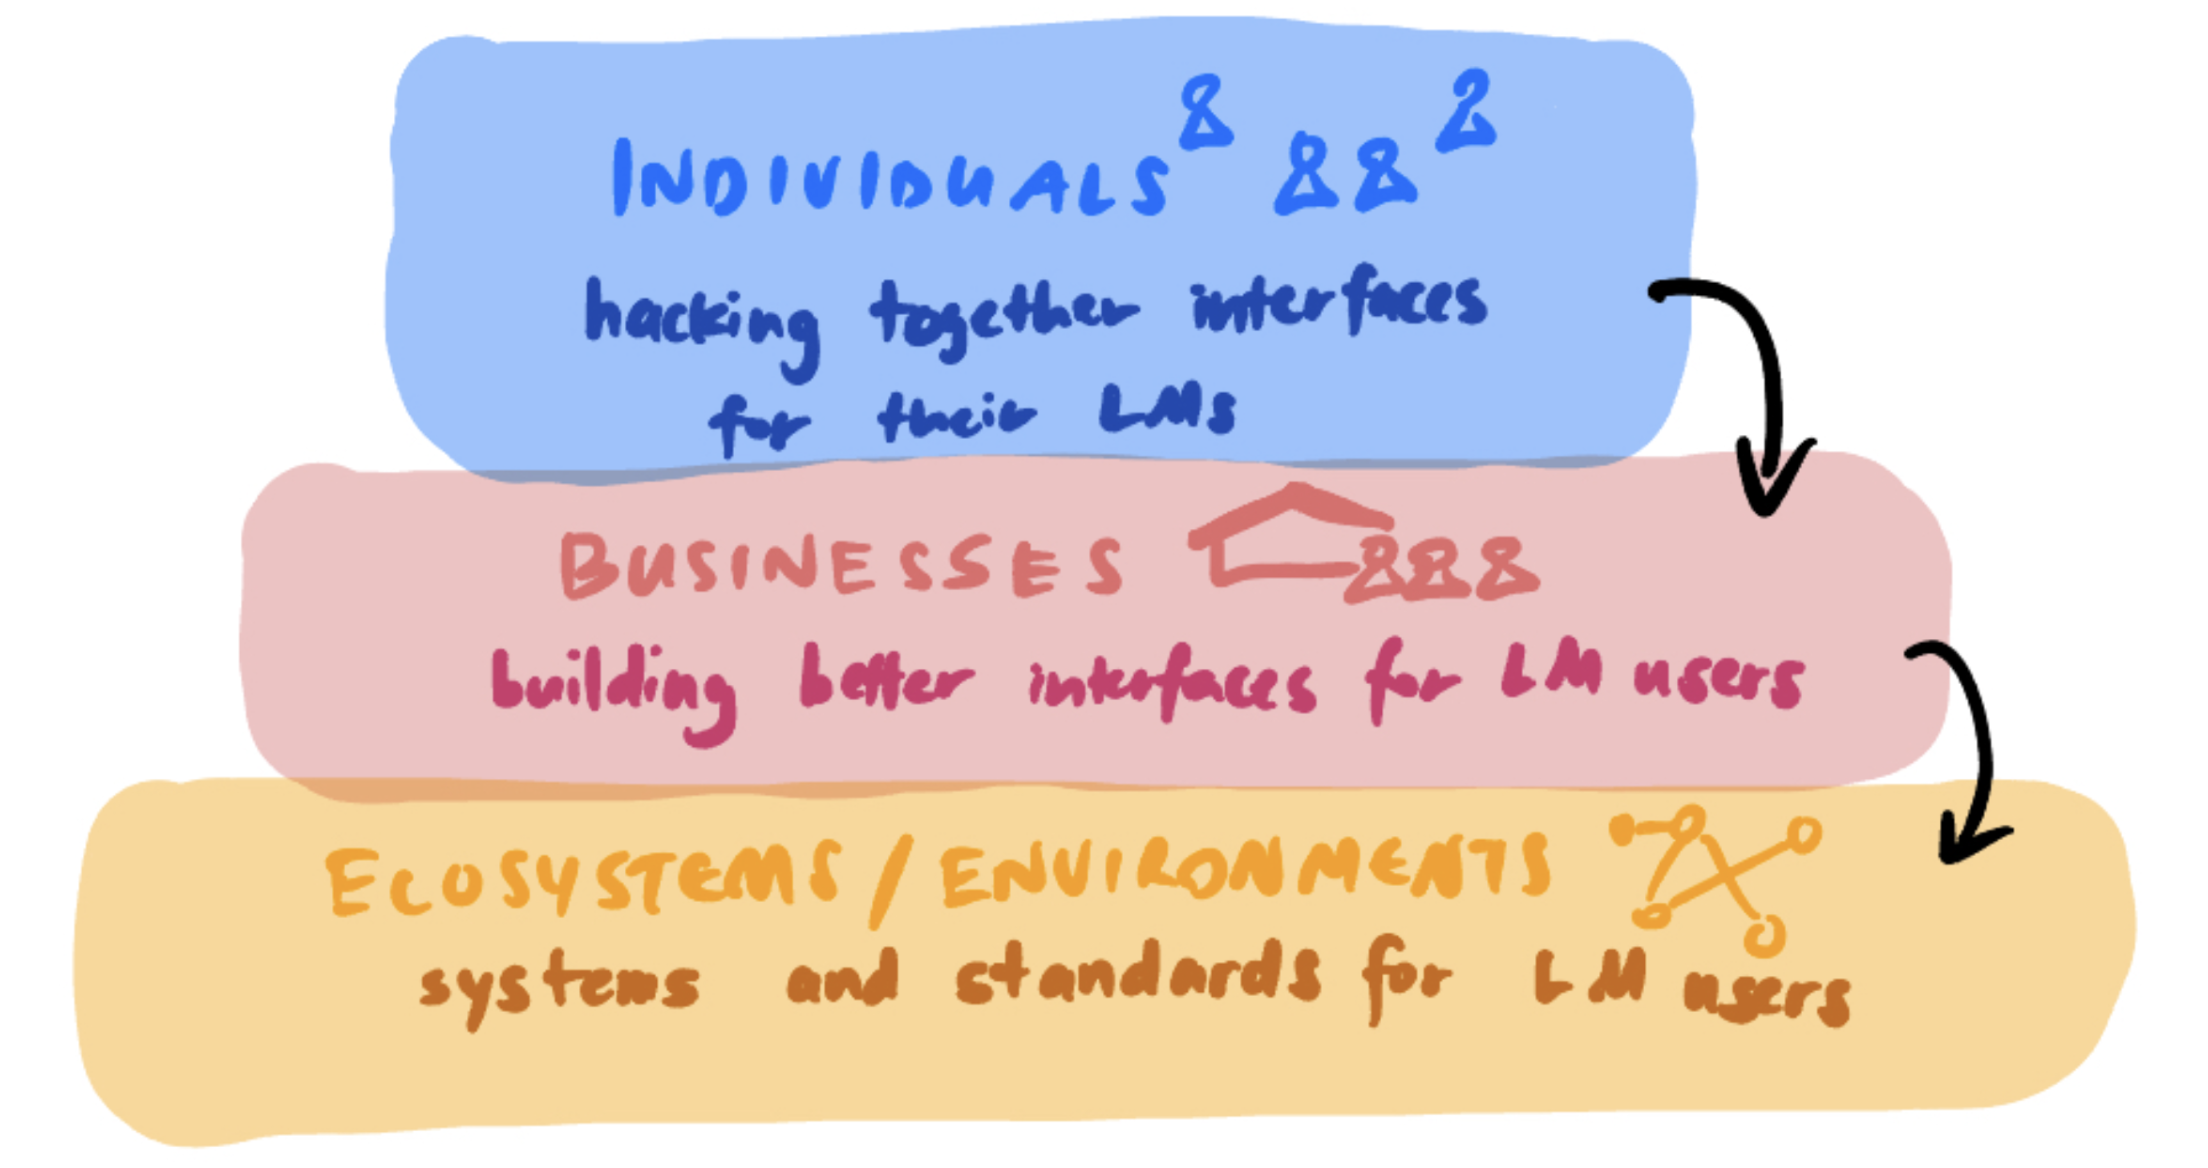 INDIVIDUALS
hacking together interfaces
for their LMs
BUSINESSES
building better interfaces for LM users
ECOSYSTEMS / ENVIRONMENTS
systems and standards for LM users